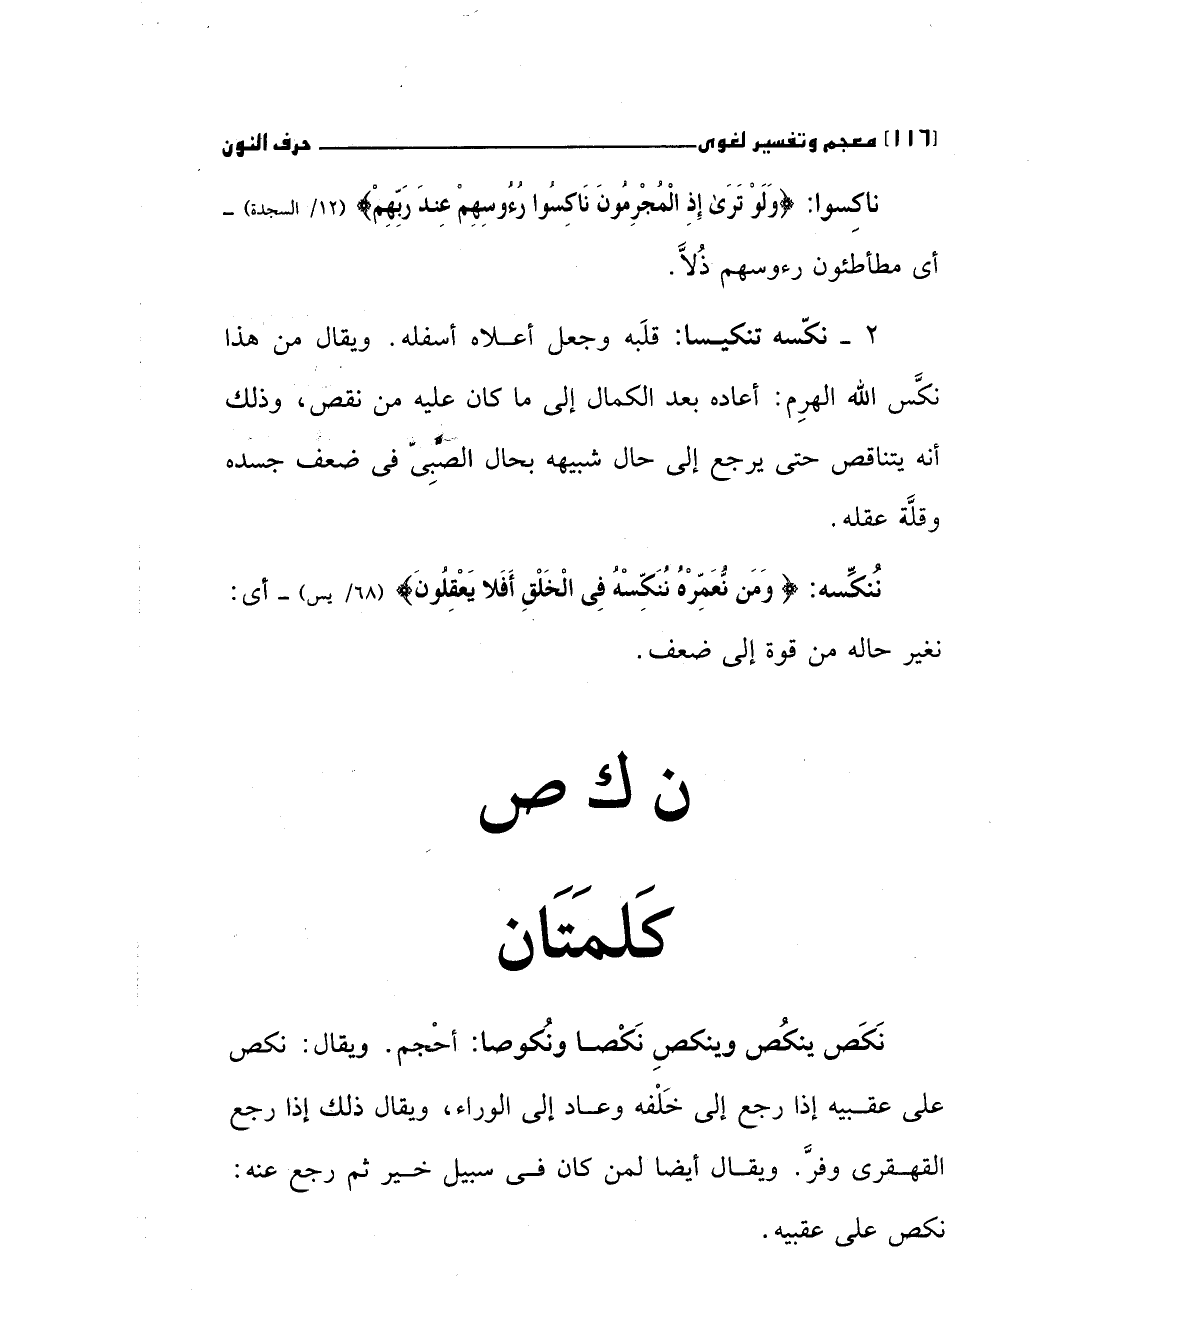 [١١٦] معجم وتفسير لغوى حرف النون
ناكِسوا: ﴿وَلَوْ تَرَىٰ إِذِ الْمُجْرِمُونَ نَاكِسُوا رُءُوسِهِمْ عِندَ رَبِّهِمْ﴾ (١٢/ السجدة) ـ
أى مطأطئون رءوسهم ذُلاًّ.
٢ ـ نكّسه تنكيسا: قلَبه وجعل أعلاه أسفله. ويقال من هذا
نكَّس الله الهرِم: أعاده بعد الكمال إلى ما كان عليه من نقص، وذلك
أنه يتناقص حتى يرجع إلى حال شبيهه بحال الصَّبِىّ فى ضعف جسده
وقلَّة عقله.
نُنكِّسه: ﴿وَمَن نُّعَمِّرْهُ نُنَكِّسْهُ فِى الْخَلْقِ أَفَلا يَعْقِلُونَ﴾ (٦٨/ يس) ـ أى:
نغير حاله من قوة إلى ضعف.
ن ك ص
كَلمَتَان
نَكَص ينكُص وينكصِ نَكْصا ونُكوصا: أحْجم. ويقال: نكص
على عقبيه إذا رجع إلى خَلْفه وعاد إلى الوراء، ويقال ذلك إذا رجع
القهقرى وفرَّ. ويقال أيضا لمن كان فى سبيل خير ثم رجع عنه:
نكص على عقبيه.